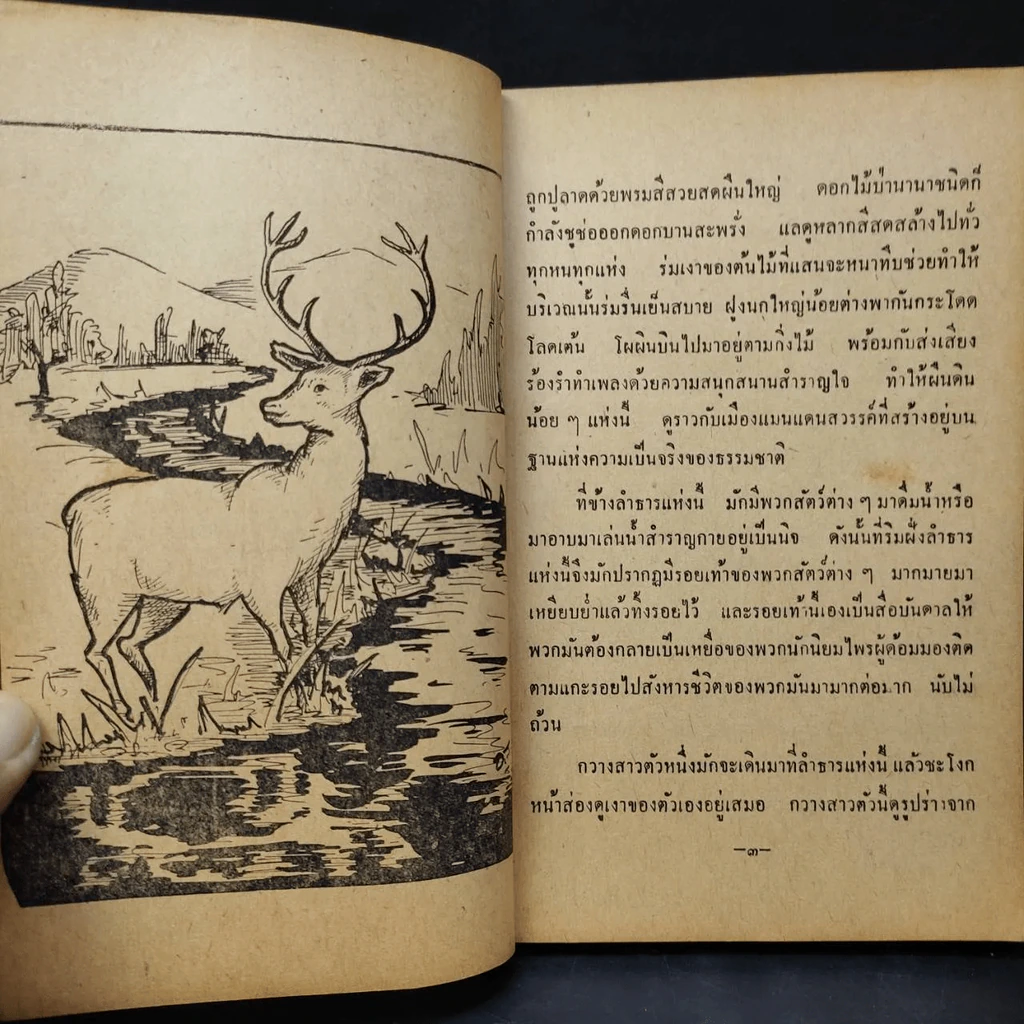 ถูกปูลาดด้วยพรมสีสวยสดผืนใหญ่ ดอกไม้ป่านานาชนิดก็
กำลังชูช่อออกดอกบานสะพรั่ง แลดูหลากสีสดสล้างไปทั่ว
ทุกหนทุกแห่ง ร่มเงาของต้นไม้ที่แสนจะหนาทึบช่วยทำให้
บริเวณนั้นร่มรื่นเย็นสบาย ฝูงนกใหญ่น้อยต่างพากันกระโดด
โลดเต้น โผผินบินไปมาอยู่ตามกิ่งไม้ พร้อมกับส่งเสียง
ร้องรำทำเพลงด้วยความสนุกสนานสำราญใจ ทำให้ผืนดิน
น้อย ๆ แห่งนี้ ดูราวกับเมืองแมนแดนสวรรค์ที่สร้างอยู่บน
ฐานแห่งความเป็นจริงของธรรมชาติ
ที่ข้างลำธารแห่งนี้ มักมีพวกสัตว์ต่าง ๆ มาดื่มน้ำหรือ
มาอาบมาเล่นน้ำสำราญกายอยู่เป็นนิจ ดังนั้นที่ริมฝั่งลำธาร
แห่งนี้จึงมักปรากฏมีรอยเท้าของพวกสัตว์ต่าง ๆ มากมายมา
เหยียบย่ำแล้วทิ้งรอยไว้ และรอยเท้านี้เองเป็นสื่อบันดาลให้
พวกมันต้องกลายเป็นเหยื่อของพวกนักนิยมไพรผู้ด้อมมองติด
ตามแกะรอยไปสังหารชีวิตของพวกมันมามากต่อมาก นับไม่
ถ้วน
กวางสาวตัวหนึ่งมักจะเดินมาที่ลำธารแห่งนี้ แล้วชะโงก
หน้าส่องดูเงาของตัวเองอยู่เสมอ กวางสาวตัวนี้ดูรูปร่างจาก
—๓—